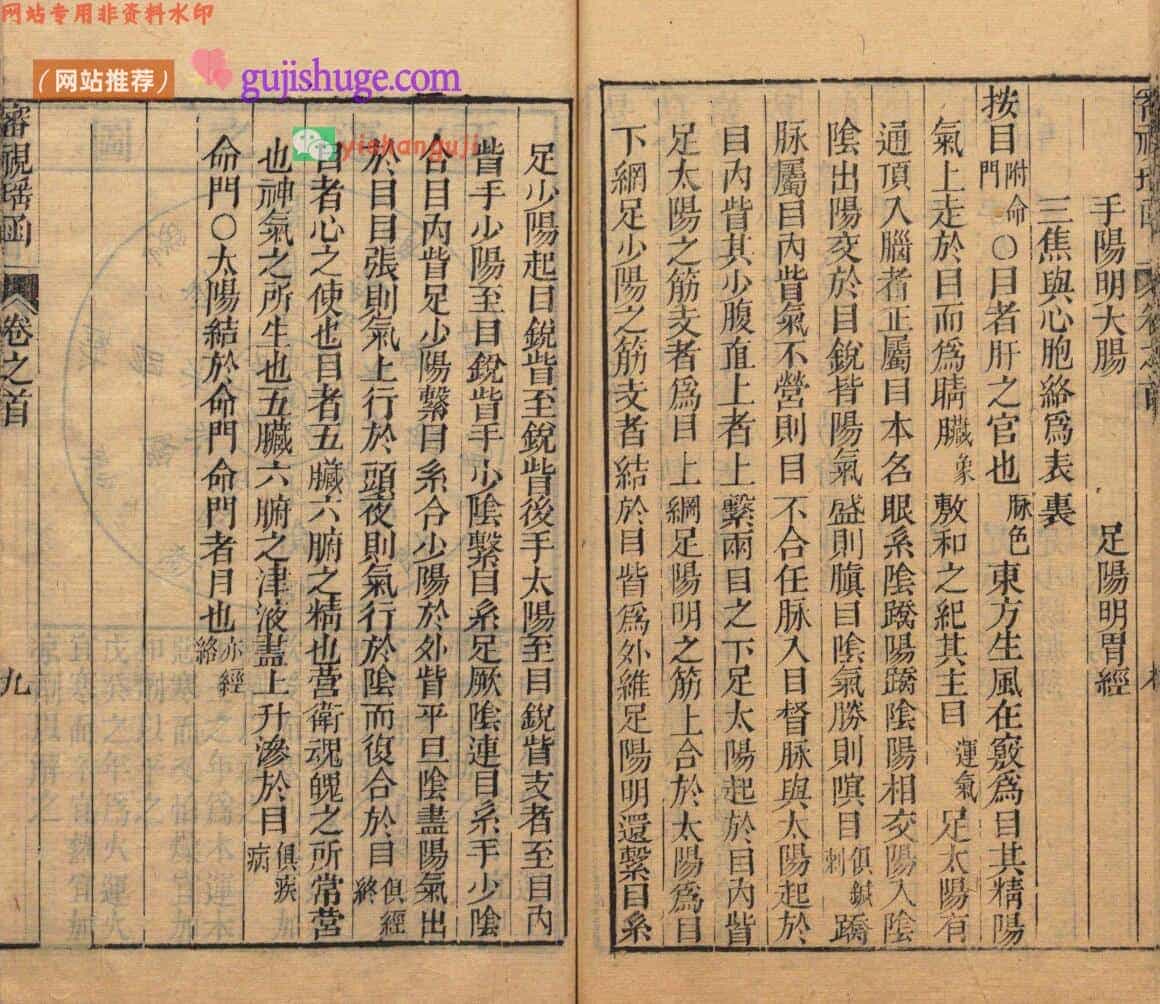 网站专用非资料水印
（网站推荐）
gujishuge.com
yishanguji
手陽明大腸　足陽明胃經
三焦與心胞絡爲表裏
按目附命門〇目者肝之官也脉色東方生風在竅爲目其精陽
氣上走於目而爲睛臟象敷和之紀其主目運氣足太陽有
通頂入腦者正屬目本名眼系陰蹻陽蹻陰陽相交陽入陰
陰出陽交於目銳眥陽氣盛則瞋目陰氣勝則瞑目俱鍼刺蹻
脉屬目內眥氣不營則目不合任脉入目督脉與太陽起於
目內眥其少腹直上者上繫兩目之下足太陽起於目內眥
足太陽之筋支者爲目上綱足陽明之筋上合於太陽爲目
下網足少陽之筋支者結於目眥爲外維足陽明還繫目系
足少陽起目銳眥至銳眥後手太陽至目銳眥支者至目內
眥手少陽至目銳眥手少陰繫目系足厥陰連目系手少陰
合目內眥足少陽繫目系合少陽於外眥平旦陰盡陽氣出
於目目張則氣上行於頭夜則氣行於陰而復合於目俱經終
目者心之使也目者五臟六腑之精也營衛魂魄之所常營
也神氣之所生也五臟六腑之津液盡上升滲於目俱疾病
命門〇太陽結於命門命門者目也亦經絡
審視瑤函
卷之首
九